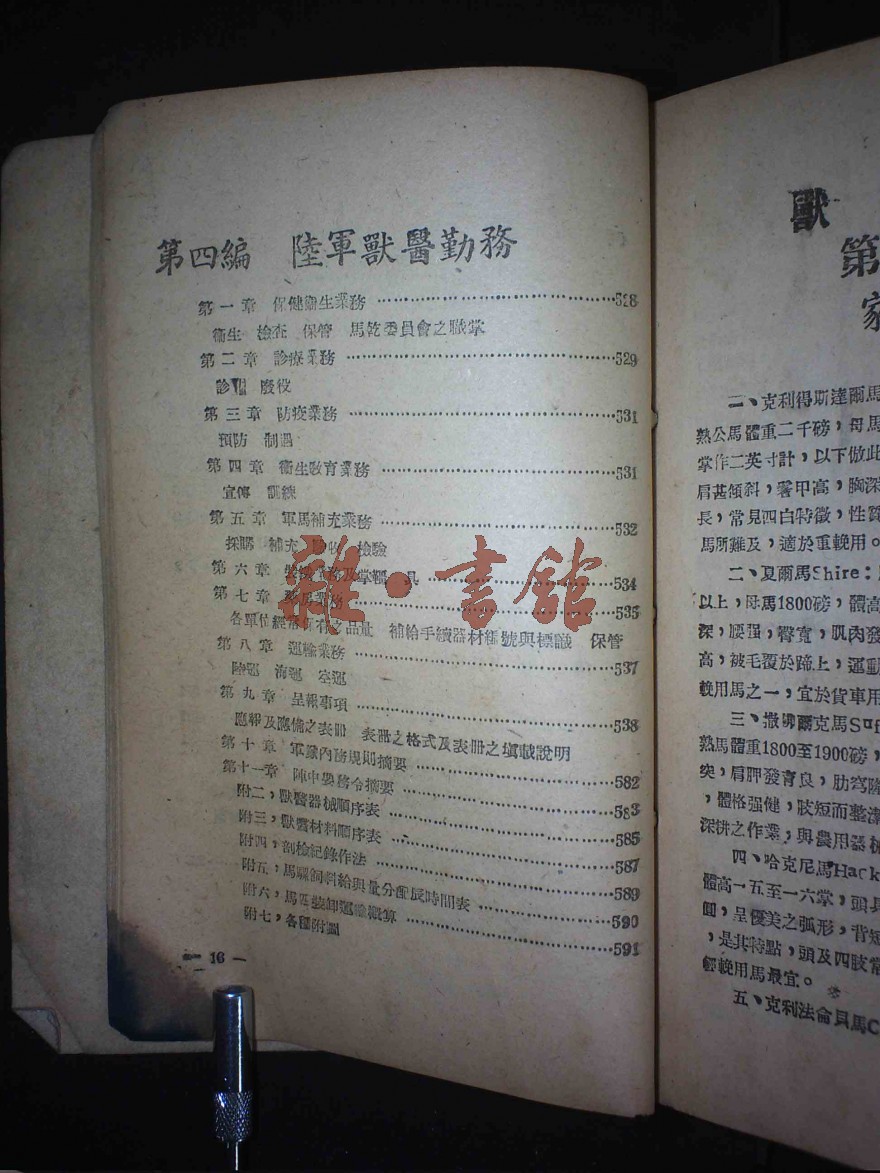 第四編 陸軍獸醫勤務
第一章 保健衞生業務 …………528
衞生 檢查 保管 馬乾委員會之職掌
第二章 診療業務 …………529
診 廢役
第三章 防疫業務 …………531
預防 制遏
第四章 衞生敎育業務 …………531
宣傳 訓練
第五章 軍馬補充業務 …………532
採購 補充 檢驗
第六章 具 …………534
第七章 業務 …………535
各單位 之品量 補給手續器材編號與標識 保管
第八章 運輸業務 …………537
陸運 海運 空運
第九章 呈報事項 …………538
應報及應備之表冊 表冊之格式及表冊之塡載說明
第十章 軍隊內務規則摘要 …………582
第十一章 陣中要務令摘要 …………583
附二，獸醫器械順序表 …………585
附三，獸醫材料順序表 …………587
附四，剖檢記錄作法 …………589
附五，馬騾飼料給與量分配及時間表 …………590
附六，馬匹裝卸運輸概算 …………591
附七，各種附圖
— 16 —
雜·書館
獸
第
家
一、克利得斯達爾馬
熟公馬體重二千磅，母馬
掌作二英寸計，以下倣此
肩甚傾斜，鬐甲高，胸深
長，常見四白特徵，性質
馬所難及，適於重輓用。
二、夏爾馬Shire：
以上，母馬1800磅，體高
深，腰强，臀寬，肌肉發
高，被毛覆於蹄上，運動
輓用馬之一，宜於貨車用
三、撒咈爾克馬Suf
熟馬體重1800至1900磅，
突，肩胛發育良，肋穹隆
，體格强健，肢短而整潔
深耕之作業，與農用器械
四、哈克尼馬Hack
體高一五至一六掌，頭長
圓，呈優美之弧形，背短
，是其特點，頭及四肢常
輕輓用馬最宜。
五、克利法侖員馬C